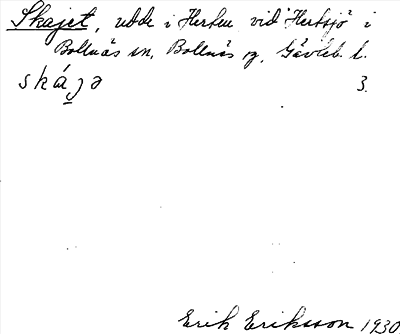 Skajet, udde i Herten vid Hertsjö i
Bollnäs sn, Bollnäs sg, Gävleb. l.
skájə 3.
Erik Eriksson 1930